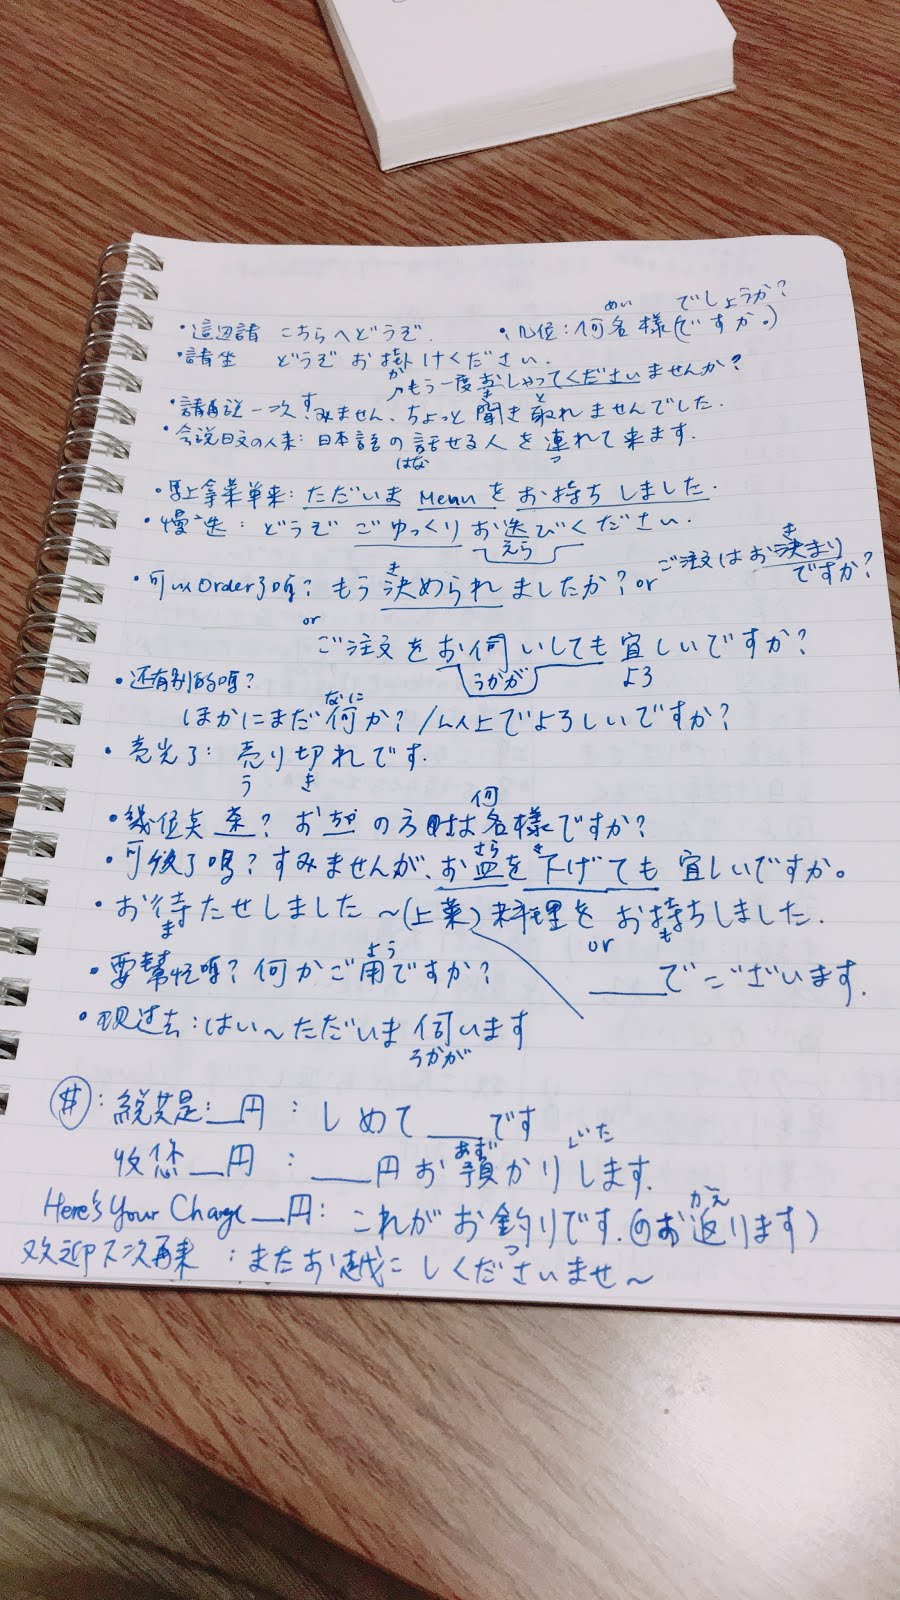 ・這边請 こちらへどうぞ. ・几位:何名様(ですか。) めい でしょうか?
・請坐 どうぞお掛けください. か
もう一度おしゃってくださいませんか?
・請再说一次 すみません、ちょっと聞き取れませんでした. き と
・会说日文の人来: 日本語の話せる人を連れて来ます. はな つ
・馬上拿菜单来: ただいま Menu を お持ちしました.
・慢迭: どうぞ ごゆっくり お迭びください. えら
・可以Order了嗎? もう決められましたか? or ご注文はお決まりですか? き き
or
ご注文をお伺いしても宜しいですか? うかが よろ
・还有别的嗎?
ほかにまだ何か? /以上でよろしいですか? なに
・売光了: 売り切れです. う き
・幾位 茶? お の方は何名様ですか?
・可後了嗎? すみませんが、お皿を下げても宜しいですか。 さら さ
・お待たせしました～(上菜) 料理を お持ちしました. ま も
or ___でございます.
・要幫忙嗎? 何かご用ですか? よう
・現过去: はい～ただいま 伺います うかが
$: 総共是:__円 : しめて ___です
收您__円 : ___円お預かりします. あず いた
Here's Your Change __円: これがお釣りです.(のお返ります) つ かえ
欢迎下次再来 : またお越こしくださいませ～